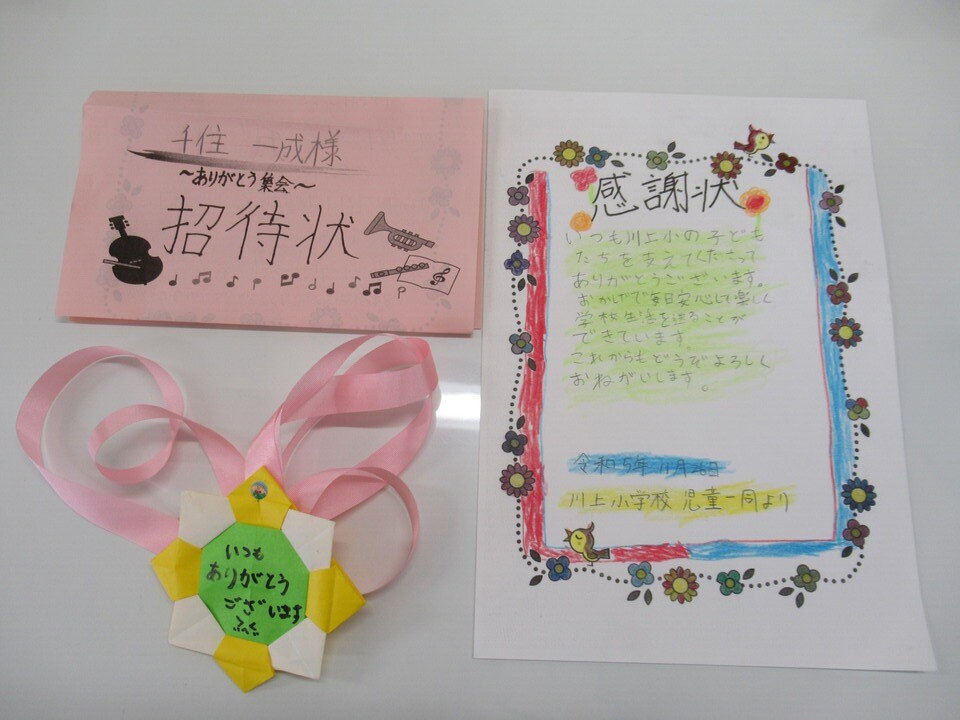 千住 一成様
～ありがとう集会～
招待状
感謝状
いつも川上小の子ども
たちを支えてくださって
ありがとうございます。
おかげで毎日安心して楽しく
学校生活を送ることが
できています。
これからもどうぞよろしく
おねがいします。
令和5年11月26日
川上小学校 児童一同より
いつも
ありがとう
ございます